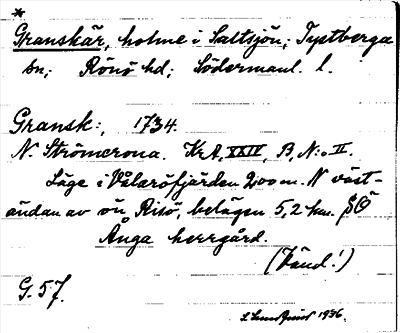 *
Granskär, holme i Saltsjön; Tystberga
sn; Rönö hd; Södermanl. l.
Gransk:, 1734.
N. Strömcrona. KrA, XXIV, B, N:o II.
Läge i Vålaröfjärden 200 m. N väst-
ändan av ön Risö, belägen 5,2 km. SÖ
Ånga herrgård.
(Vänd!)
G. 57.
1936.